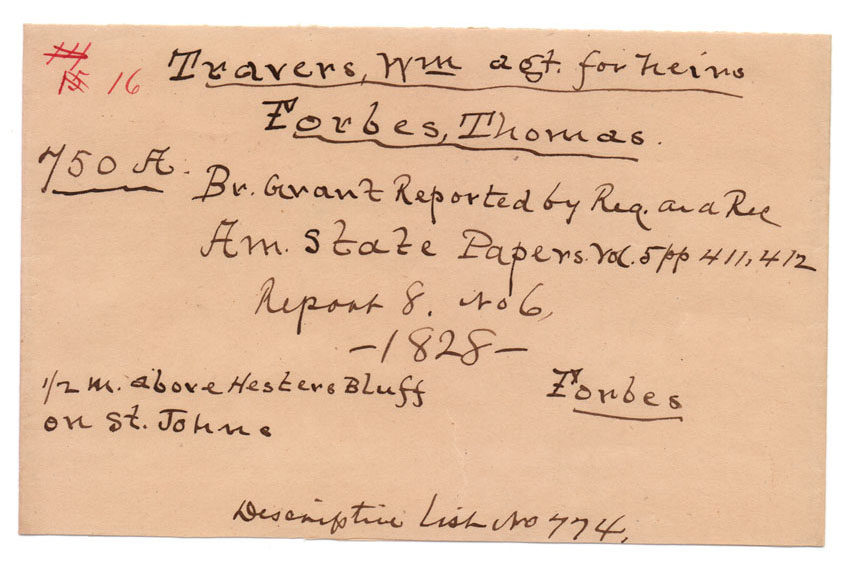 16 Travers, Wm agt. for heirs
Forbes, Thomas.
750 A.
Br. Grant Reported by Reg. and Rec
Am. State Papers. Vol. 5 pp 411, 412
Report 8. No 6,
-1828-
1/2 m. above Hesters Bluff
on St. Johns
Forbes
Descriptive List No 774.